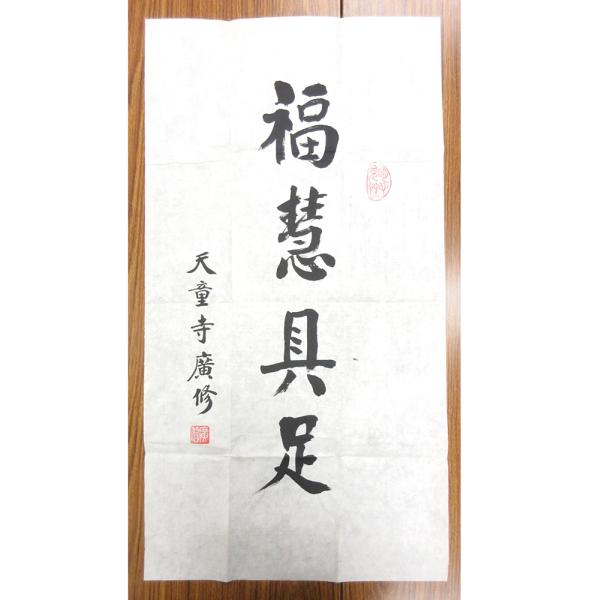 福慧具足
天童寺廣修